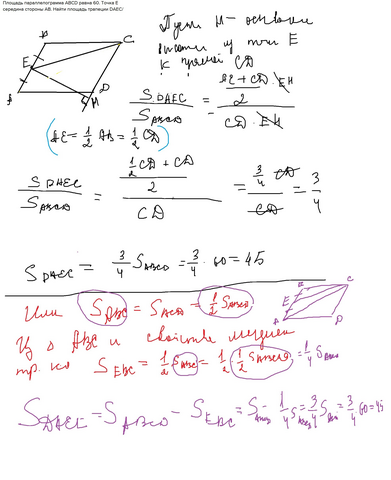 Площадь параллелограмма ABCD равна 60. Точка E
середина стороны AB. Найти площадь трапеции DAEC/
Пусть H - основание
высоты из точки E
к прямой CD
B
C
E
A
D
H
S DAEC / S ABCD = ((AE + CD)/2 · EH) / (CD · EH)
(AE = 1/2 AB = 1/2 CD)
S DAEC / S ABCD = ((1/2 CD + CD)/2) / CD = (3/4 CD) / CD = 3/4
S DAEC = 3/4 S ABCD = 3/4 · 60 = 45
Или S ABC = S ACD = 1/2 S ABCD
B
C
E
A
D
Из Δ ABC и свойства медианы
тр. ка S EBC = 1/2 S ABC = 1/2 · 1/2 S ABCD = 1/4 S ABCD
S DAEC = S ABCD - S EBC = S ABCD - 1/4 S ABCD = 3/4 S ABCD = 3/4 · 60 = 45